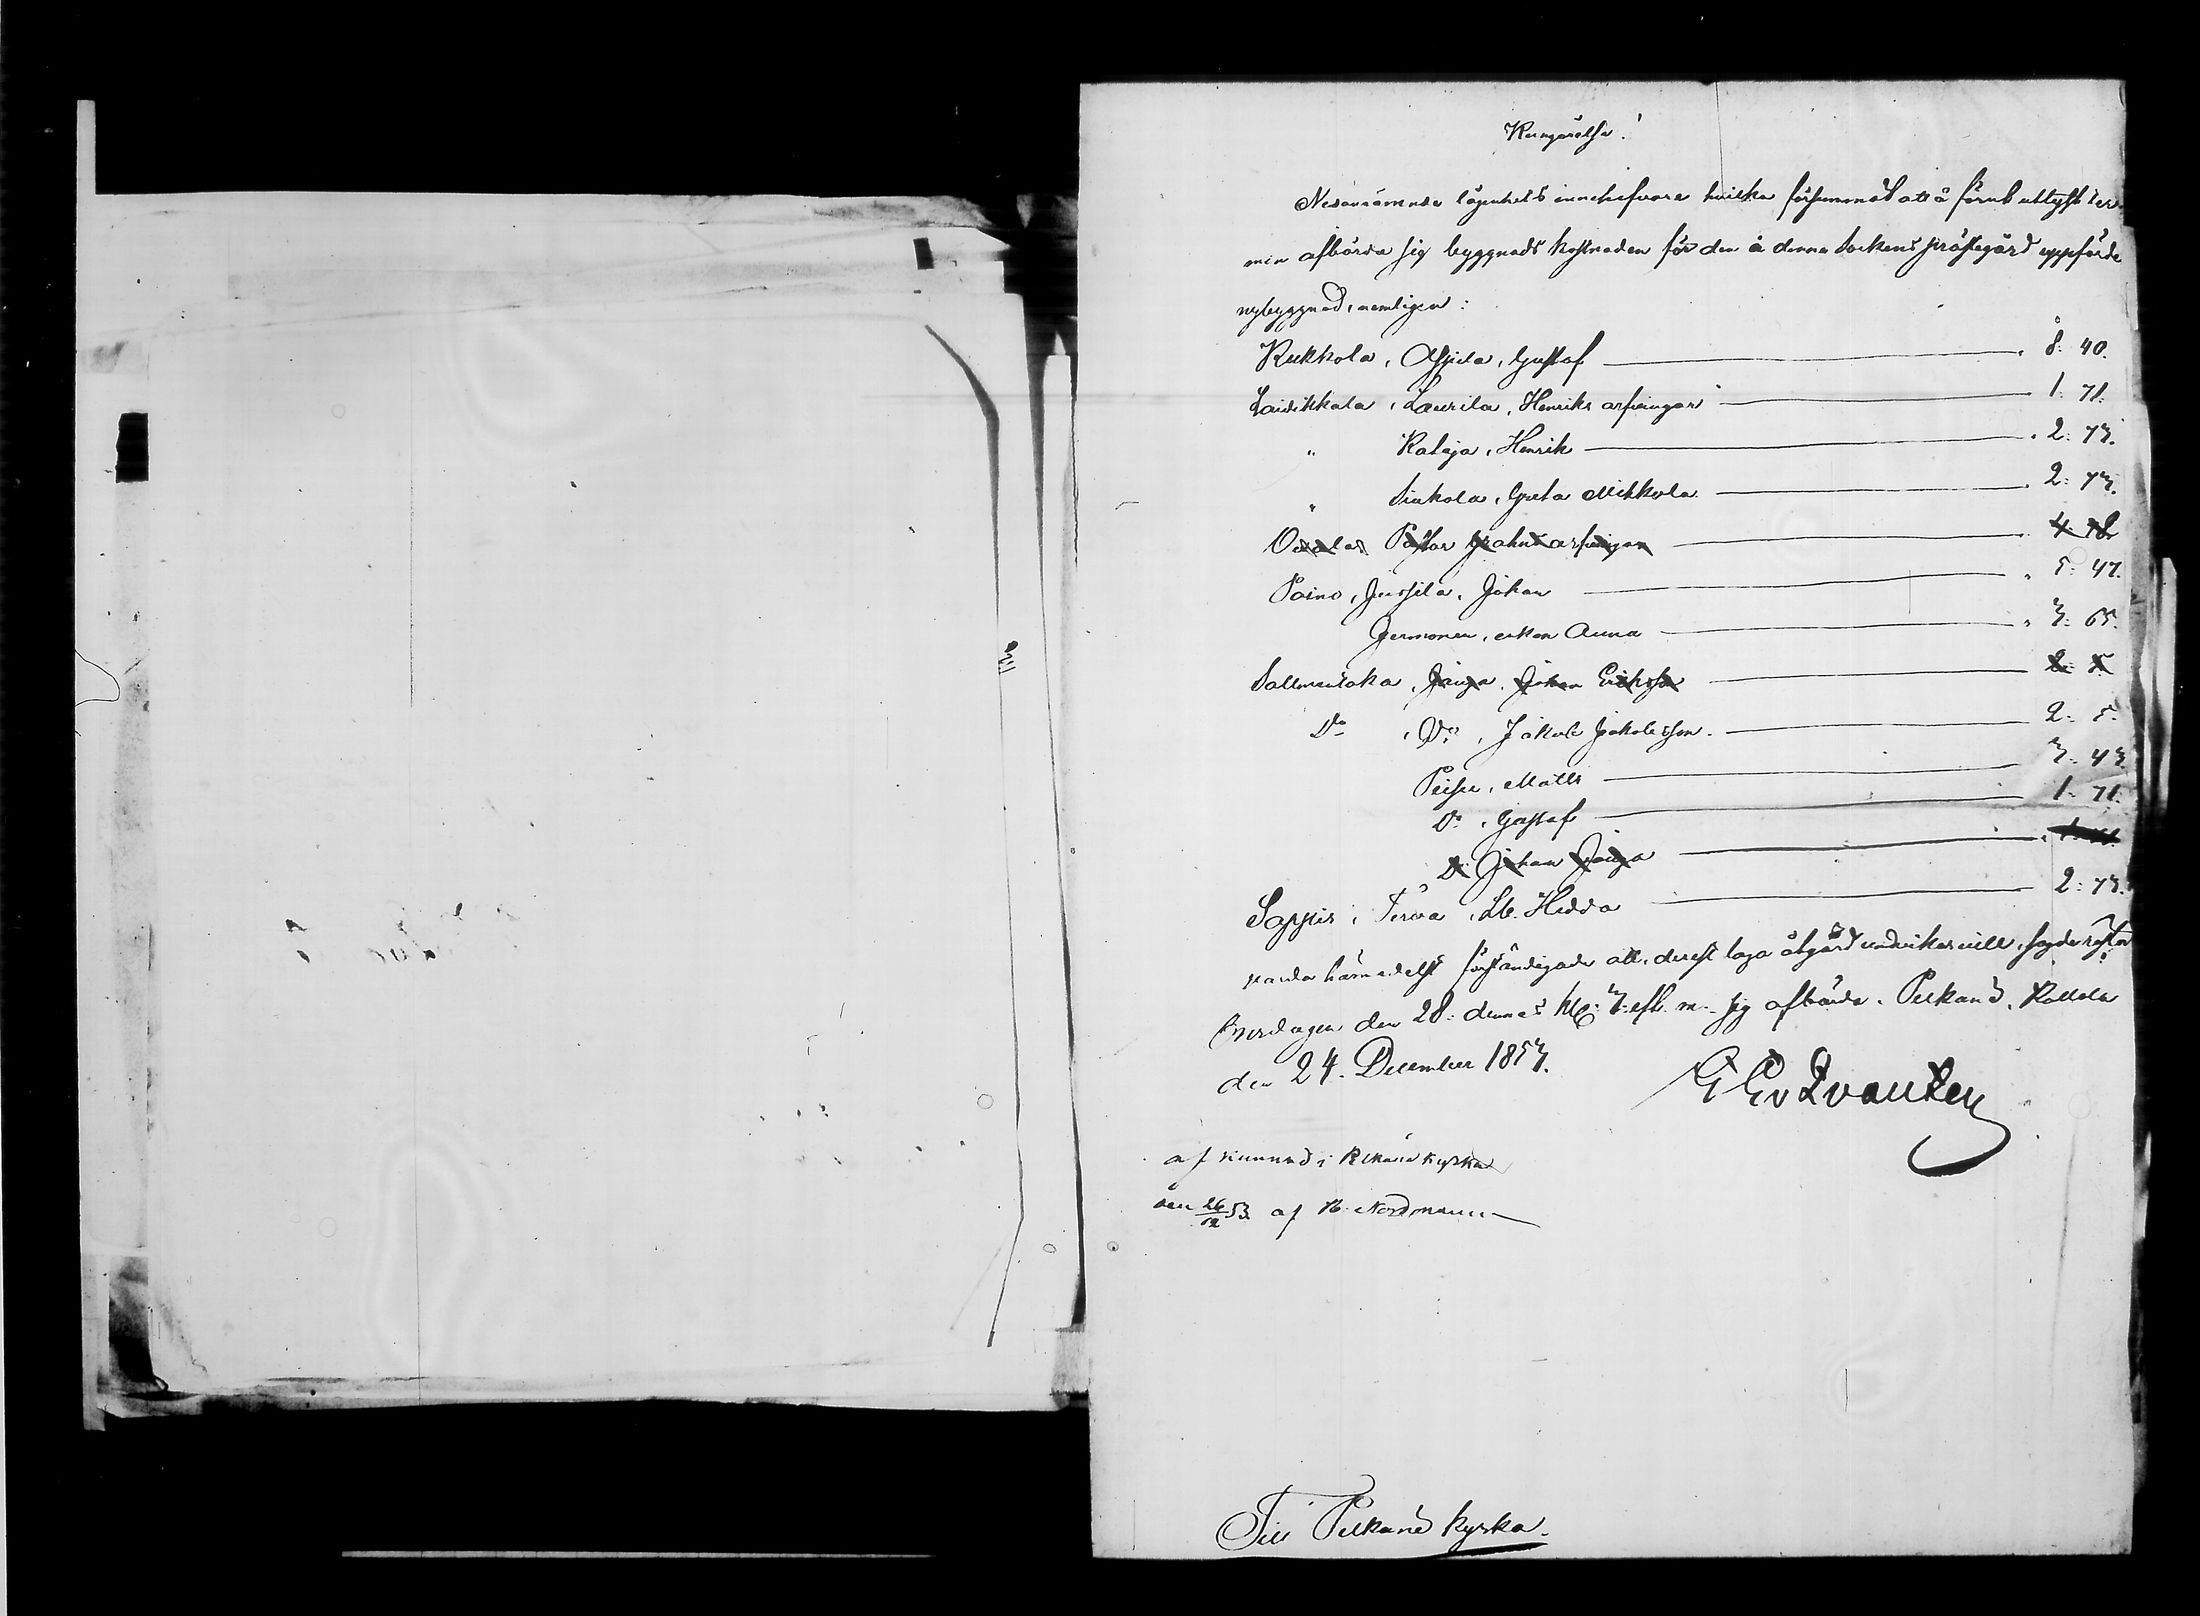 Kungörelse!
Nedannämnde lägenhets innehafvare hvilka försummat att å förut utlyst ter-
min afbörda sig byggnads kostnaden för den å denna Sockens prästegård uppförde
nybyggnad, nemligen:
Kukkola, Assila, Gustaf 8: 40.
Laitikkala, Laurila, Henriks arfvingar 1: 71.
" Rateja, Henrik 2: 73.
" Sinkola, Greta Mikkola 2: 73.
Pastor Grahns arfvingar
Paino, Jussila, Johan 5: 47.
Jermonen, enkan Anna 3: 65.
Sallmentaka, Jäuja, Johan Eriksson 2: 5
Do, Do, Jakob Jakobsson. 2: 5.
Peipu, Matts 3: 43
Do, Gustaf 1: 71.
Do Johan Jäuja
Sappi, Terva, Lb. Hedda 2: 73.
varda härmedelst förständigade att, derest laga åtgärd undvikas vill, sagde rester
Onsdagen den 28. dennes kl: 3 eft. m. sig afbörda. Pelkäne,
den 24. December 1853.
af kunnad i Pelkäne kyrka
den 26/12 53 af Nordmann
Till Pelkäne kyrka.